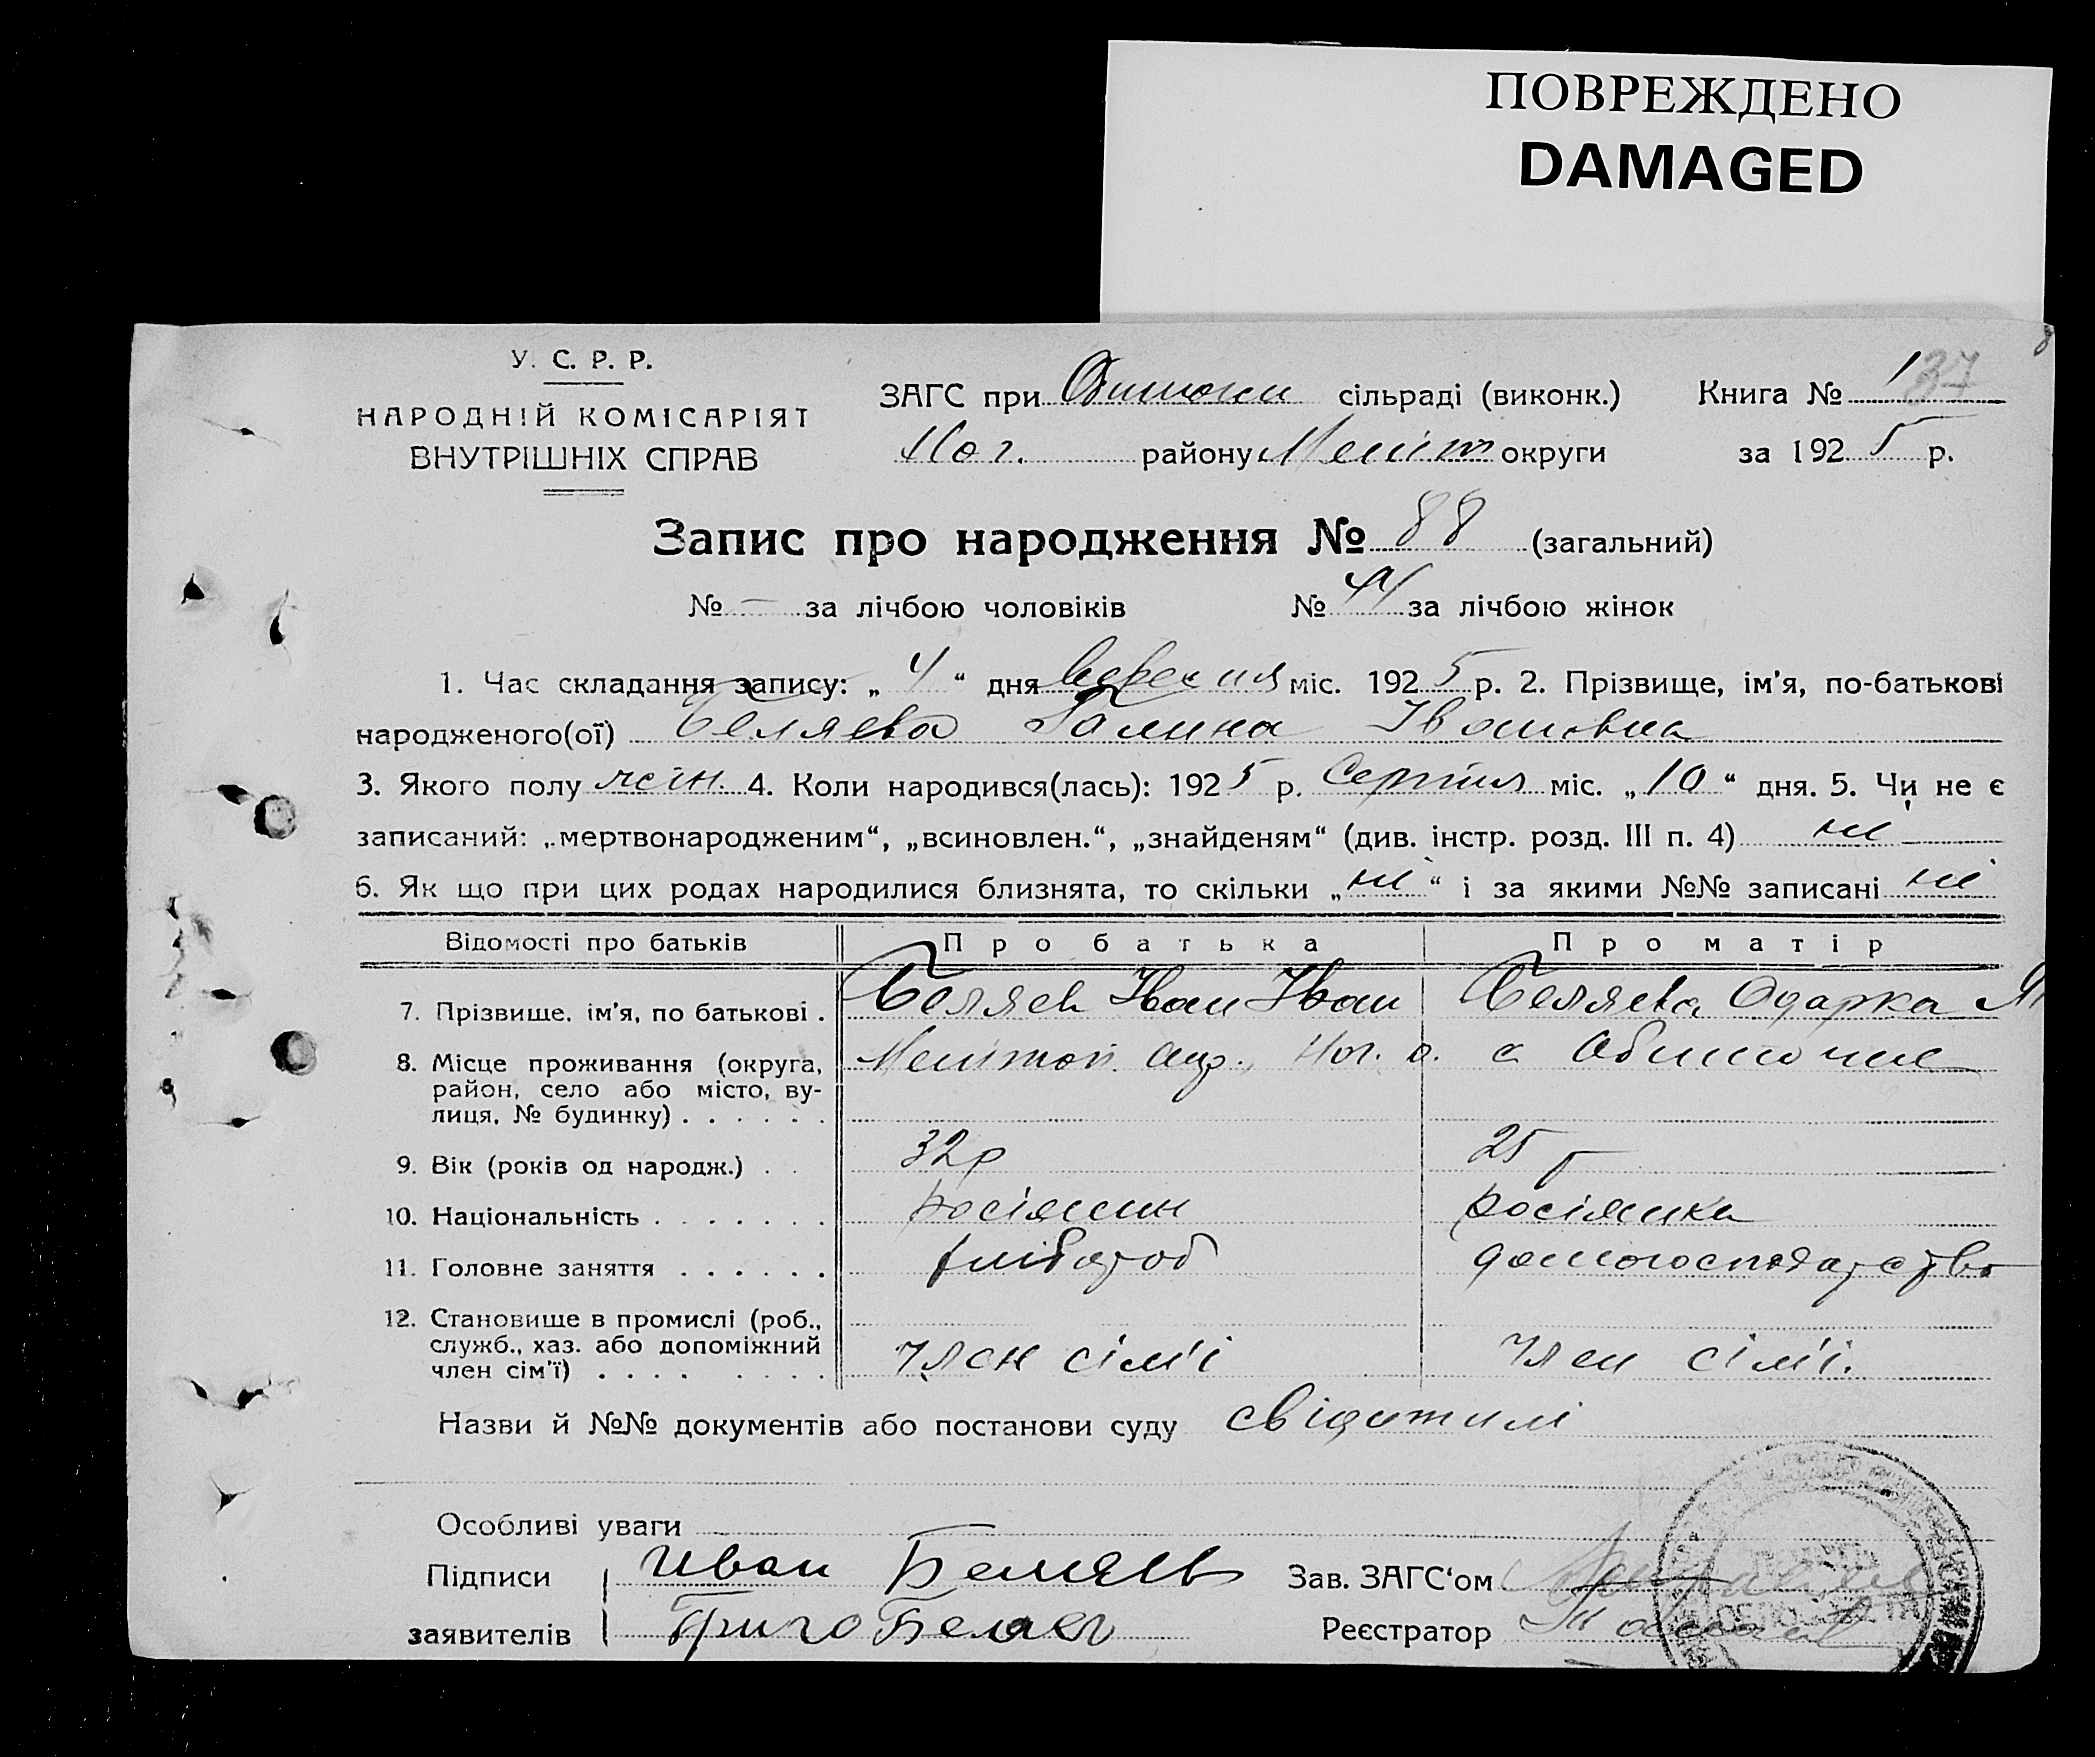 ПОВРЕЖДЕНО
DAMAGED
У. С. Р. Р.
НАРОДНІЙ КОМІСАРІЯТ
ВНУТРІШНІХ СПРАВ
ЗАГС при сільраді (виконк.) Книга № 1 37
Ног. району Меліт округи за 1925 р.
Запис про народження № 88 (загальний)
№ – за лічбою чоловіків № 44 за лічбою жінок
1. Час складання запису: „4“ дня вересня міс. 1925 р. 2. Прізвище, ім'я, по-батькові
народженого(ої) Беляева Галина Івановна
3. Якого полу жін. 4. Коли народився(лась): 1925 р. Серпня міс. „10“ дня. 5. Чи не є
записаний: „мертвонародженим“, „всиновлен.“, „знайденям“ (див. інстр. розд. III п. 4) ні
6. Як що при цих родах народилися близнята, то скільки „ні“ і за якими №№ записані ні
Відомості про батьків Про батька Про матір
7. Прізвище, ім'я, по батькові . Беляев Іван Іван Беляева Одарка
8. Місце проживання (округа, район, село або місто, вулиця, № будинку) . . . . . . Меліноп. окр., Ног. р. с Обиточне
9. Вік (років од народж.) . . 32р 25 р
10. Національність . . . . . . . росіянин росіянка
11. Головне заняття . . . . . . хлібороб домогосподарство
12. Становище в промислі (роб., служб., хаз. або допоміжний член сім'ї) . . . . . . . . член сім'ї член сім'ї.
Назви й №№ документів або постанови суду свідитилі
Особливі уваги
Підписи Иван Беляев Зав. ЗАГС'ом
заявителів Григо Беляев Реєстратор